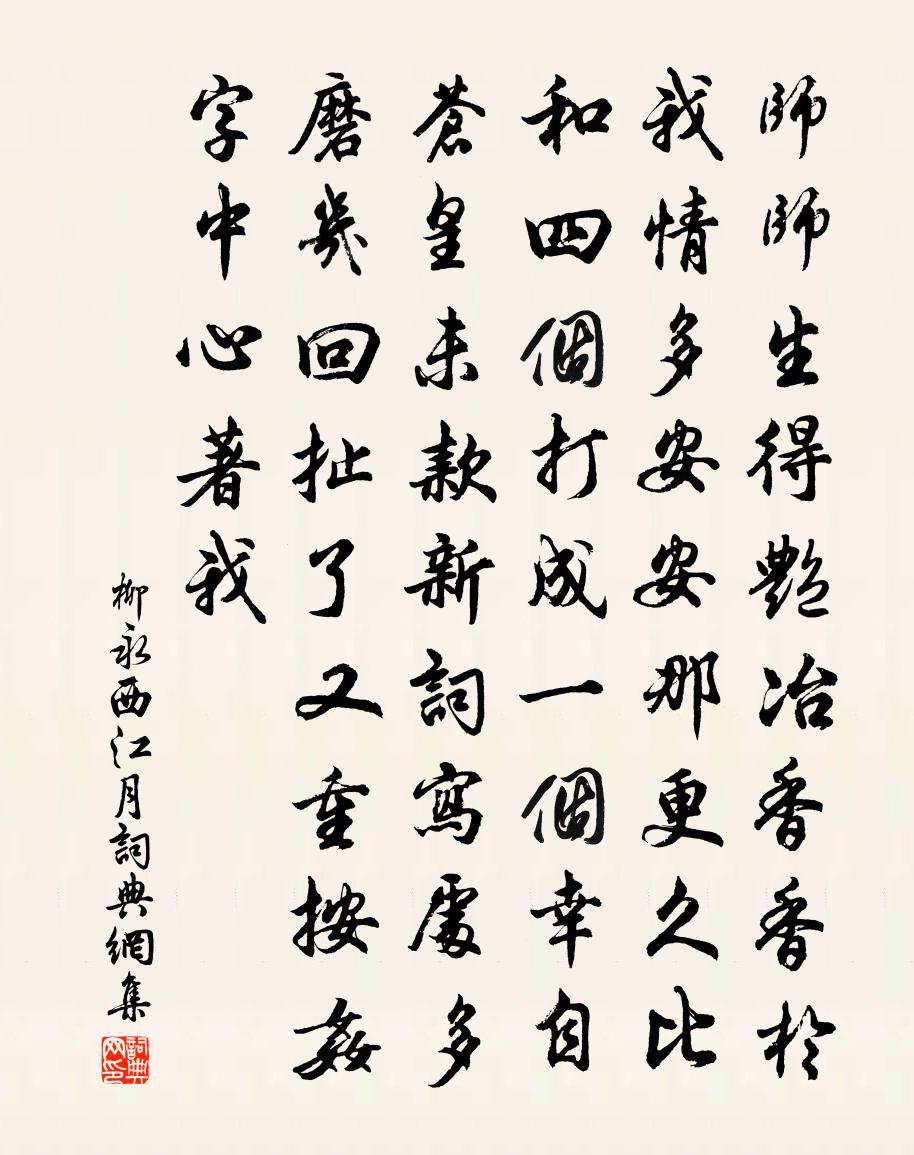 師師生得艷冶香香於
我情多安安那更久比
和四個打成一個幸自
蒼皇未款新詞寫處多
磨幾回扯了又重挼姦
字中心著我
柳永西江月詞典網集
詞典网印